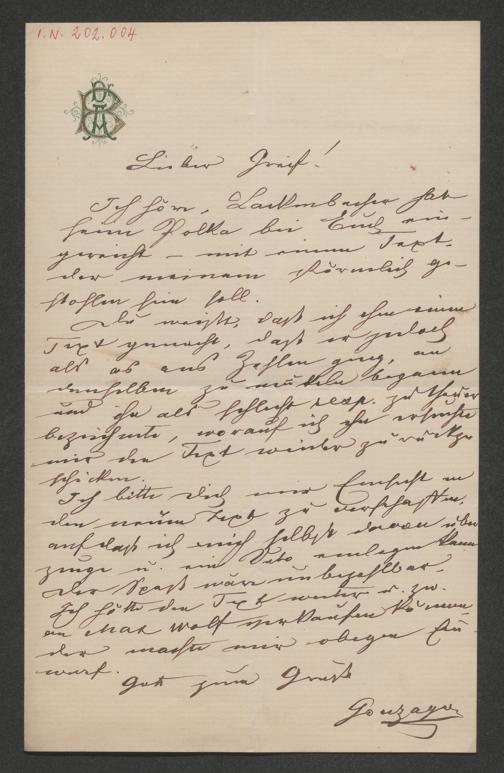 I.N. 202.004
Lieber Greif!
Ich höre, Lackenbacher hat
seine Polka bei Euch ein-
gereicht – mit einem Text
der meinem förmlich ge-
stohlen sein soll.
Du weißt, daß ich ihm einen
Text gemacht, daß er jedoch
als es ans Zahlen ging, an
demselben zu mäkeln begann
und ihn als schlecht resp. zu theuer
bezeichnete, worauf ich ihn ersuchte
mir den Text wieder zurückzu
schicken.
Ich bitte Dich mir Einsicht in
den neuen Text zu verschaffen,
auf daß ich mich selbst davon über
zeuge u. ein Veto einlegen kann
Der Spaß wäre unbezahlbar.
Ich hätte den Text weiter u. zw.
an Max Wolf verkaufen können
der machte mir obigen Ein-
wurf.
Gott zum Gruß
Gonzaga